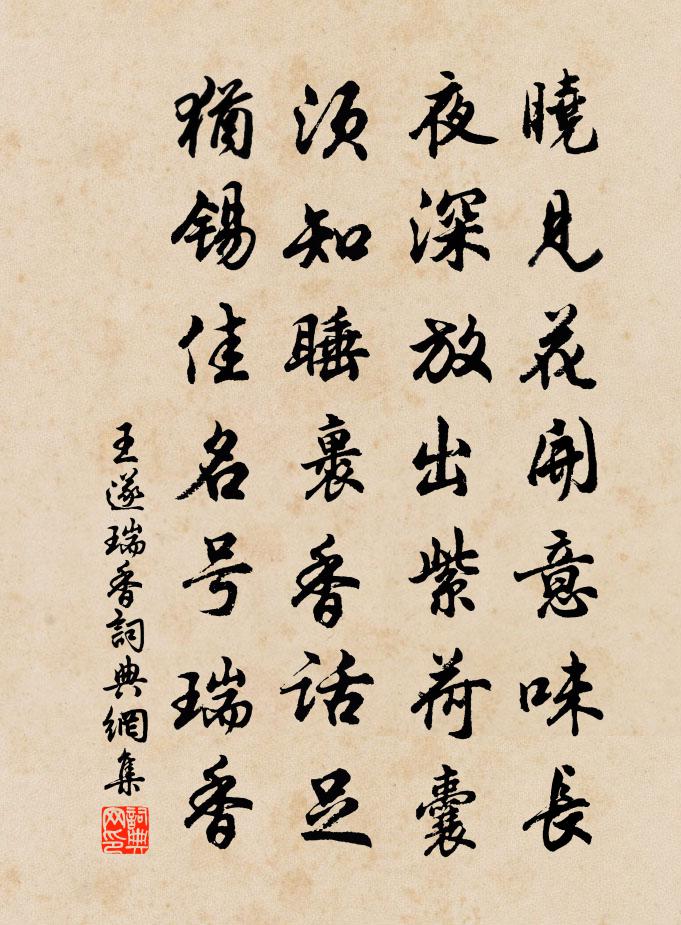 曉見花開意味長
夜深放出紫荷囊
須知睡裏香話足
猶錫佳名号瑞香
王遂瑞香詞典網集
詞典网印